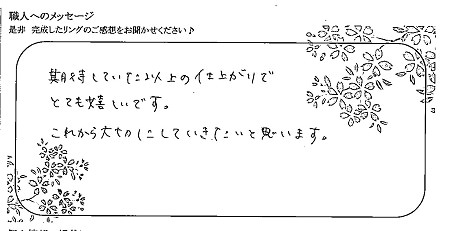 職人へのメッセージ
是非 完成したリングのご感想をお聞かせください♪
期待していた以上の仕上がりで
とても嬉しいです。
これから大切にしていきたいと思います。